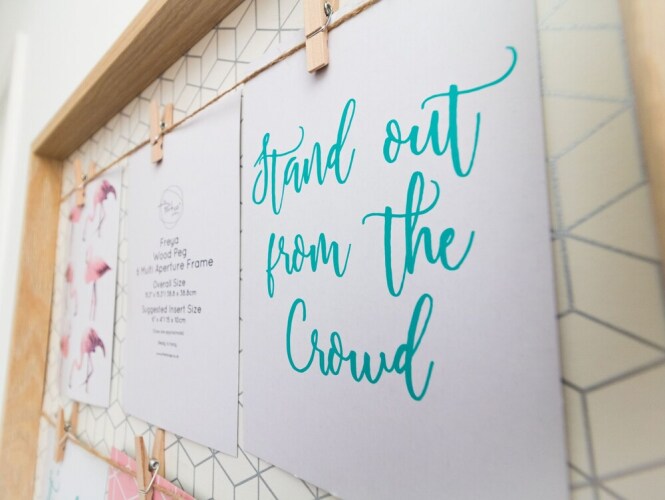 Stand out
from the
Crowd
Freya
Wood Peg
6 Multi Aperture Frame
Overall Size
Suggested Insert Size